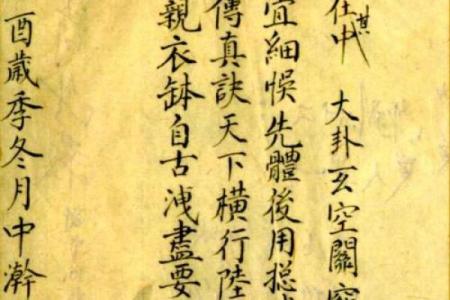 在其中 大卦玄空關竅
宜細悞先體後用揔
傳真訣天下橫行陸
親衣缽自古洩盡要
酉歲季冬月中澣